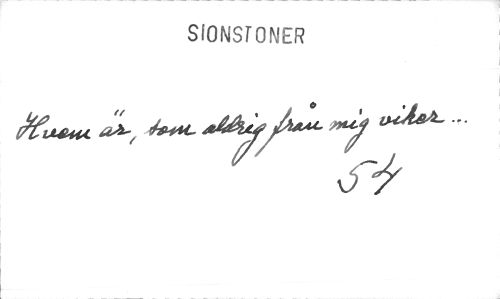 SIONSTONER
Hvem är, som aldrig från mig viker ...
54